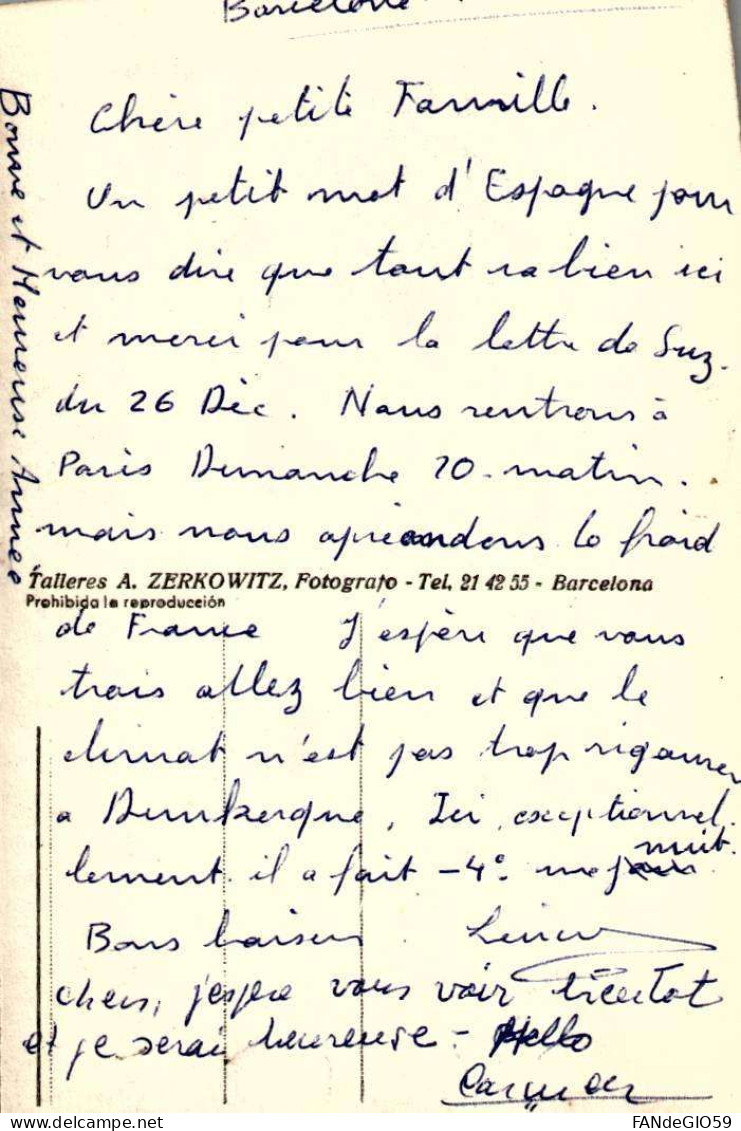 Barcelone
Chère petite Famille.
Un petit mot d'Espagne pour
vous dire que tout va bien ici
et merci pour la lettre de Suz.
du 26 Dèc. Nous rentrons à
Paris Dimanche 10. matin.
mais nous apréendons le froid
Talleres A. ZERKOWITZ, Fotografo - Tel. 21 42 55 - Barcelona
Prohibida la reproducción
de France J'espère que vous
trois allez bien et que le
climat n'est pas trop rigoureux
a Dunkerque, Ici, exceptionnel.
lement il a fait -4°. une nuit.
Bons baisers.
chers, j'espère vous voir bientot
et je serai heureuse -
Carmen
Bonne et Heureuse Année
FANdeGIO59